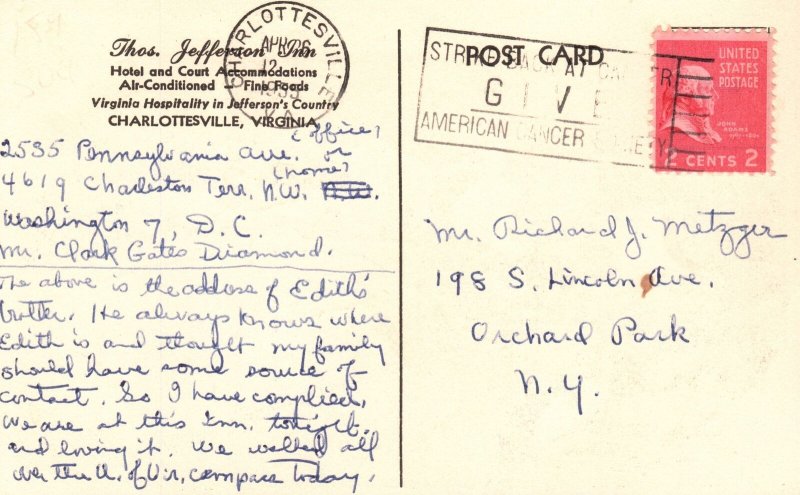 Thos. Jefferson Inn
Hotel and Court Accommodations
Air-Conditioned Fine Foods
Virginia Hospitality in Jefferson's Country
CHARLOTTESVILLE, VIRGINIA
CHARLOTTESVILLE
APR 6
12
1955
VA.
STRIKE BACK AT CANCER
GIVE
AMERICAN CANCER SOCIETY
POST CARD
UNITED
STATES
POSTAGE
JOHN
ADAMS
2 CENTS 2
(office)
2535 Pennsylvania Ave. or
(home)
4619 Charleston Terr. N.W. N.W.
Washington 7, D.C.
Mr. Clark Gates Diamond.
The above is the address of Edith's
brother. He always knows where
Edith is and thought my family
should have some source of
contact. So I have complied.
We are at this Inn tonight
and loving it. We walked all
over the U. of Vir. compass today.
Mr. Richard J. Metzger
198 S. Lincoln Ave.
Orchard Park
N.Y.